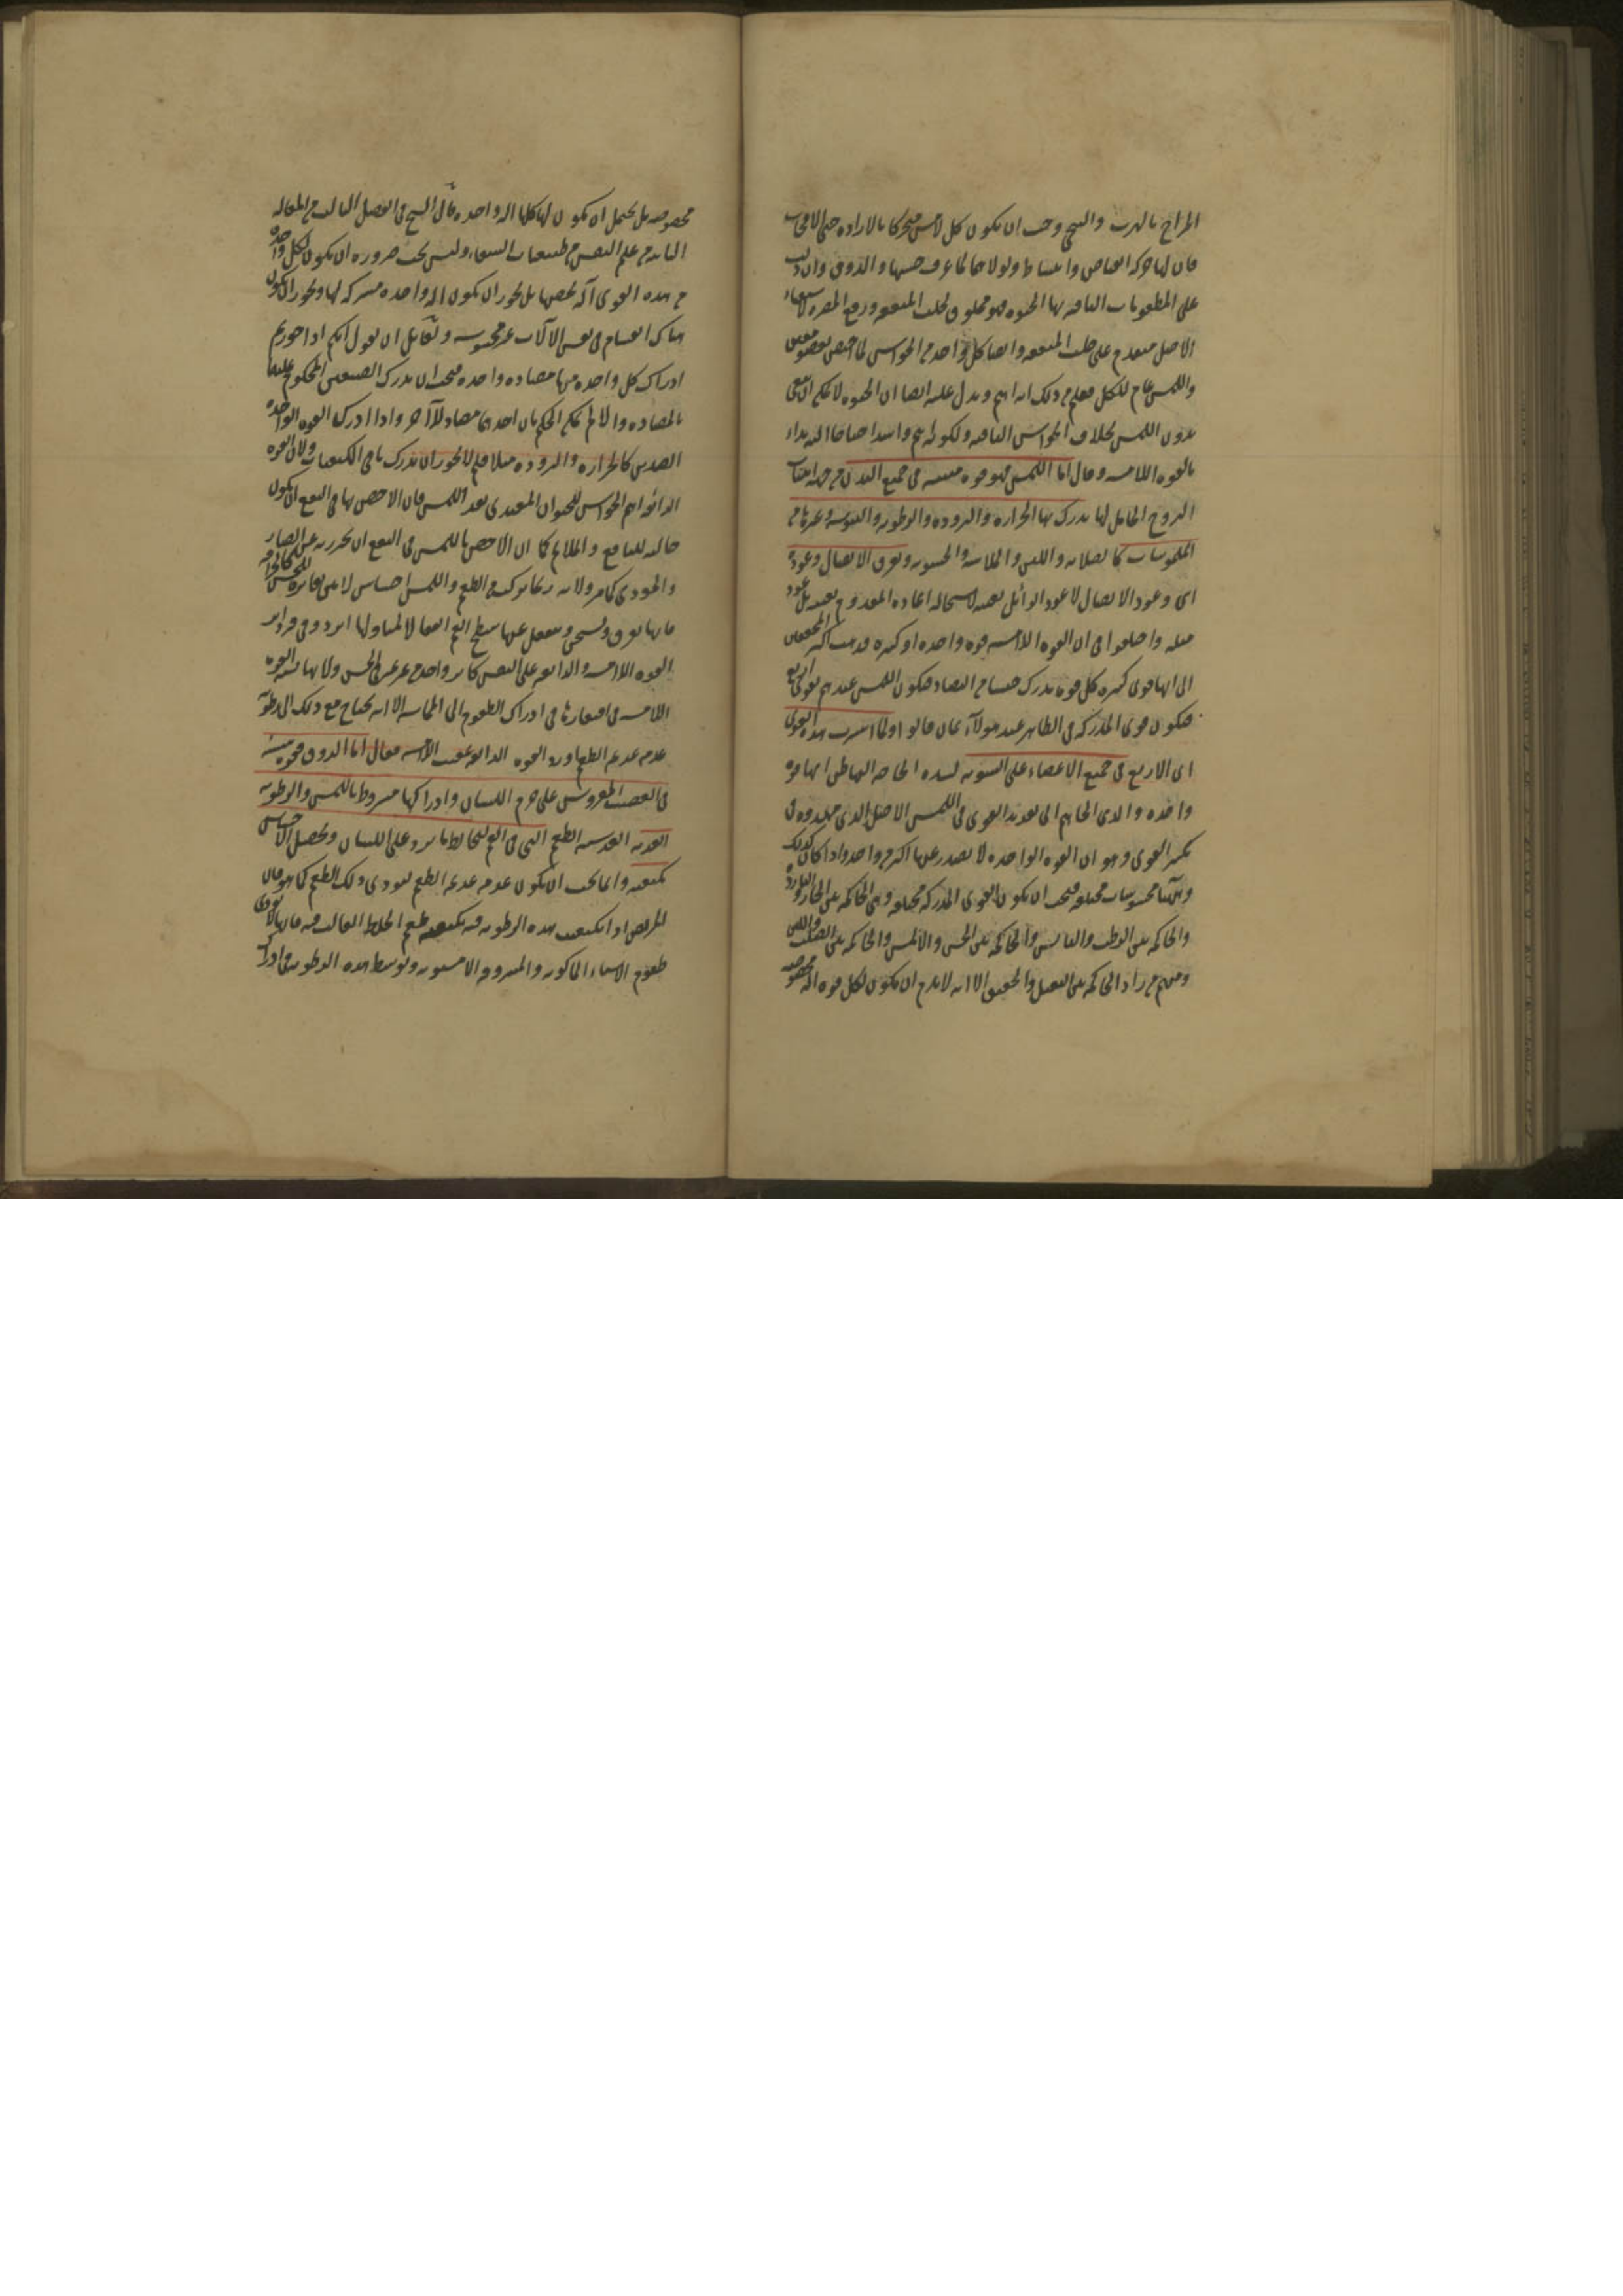 المزاج بالهرب والتنحي وجب ان يكون كل لامس متحركا بالارادة حتى الاسفنجات
فان لها حركة انقباض وانبساط ولولاهما لما عرف حسها والذوق وان دلت
على المطعومات الباقية بها الحيوة فهو مخلوق لجلب المنفعة ودفع المضرة لاستبقاء
الاصل متقدم على جلب المنفعة وايضا كل واحد من الحواس لها اختص بعضو معين
واللمس عام للكل فعلم من ذلك انه اهم ويدل عليه ايضا ان الحيوة لا يمكن ان تبقى
بدون اللمس بخلاف الحواس الباقية ولكونه اهم واشد احتياجا اليه بداء
بالقوة اللامسة وقال اما اللمس فهو قوة منبثة فى جميع البدن من جهة انبثاث
الروح الحامل لها يدرك بها الحرارة والبرودة والرطوبة واليبوسة وغيرها من
الملموسات كالصلابة واللين والملاسة والخشونة وتفرق الاتصال وعوده
اى وعود الاتصال لا عود الزائل بعينه لاستحالة اعادة المعدوم بعينه بل عود
مثله واختلفوا فى ان القوة اللامسة قوة واحدة او كثيرة فذهب اكثر المحققين
الى انها قوى كثيرة كل قوة تدرك جنسا من التضاد فيكون اللمس عندهم بقوى اربع
فيكون قوى المدركة فى الظاهر عند هولاء ثمان قالوا ولما انتشرت هذه القوى
اى الاربع فى جميع الاعضاء على السوية لشدة الحاجة اليها ظن انها قوة
واحدة والذى الجاهم الى تعديد القوى فى اللمس الاصل الذى مهدوه فى
تكثير القوى وهو ان القوة الواحدة لا يصدر عنها اكثر من واحد واذا كان كذلك
وهاهنا محسوسات مختلفة فيجب ان يكون القوى المدركة مختلفة وهى الحاكمة بين الحار والبارد
والحاكمة بين الرطب واليابس والحاكمة بين الخشن والاملس والحاكمة بين الصلب واللين
ومنهم من زاد الحاكمة بين الثقيل والخفيف الا انه لا يلزم ان يكون لكل قوة الة مخصوصة
مخصوصة بل يحتمل ان يكون لها كلها الة واحدة قال الشيخ فى الفصل الثالث من المقالة
الثانية من علم النفس من طبيعيات الشفاء وليس يجب ضرورة ان يكون لكل واحدة
من هذه القوى آلة تخصها بل يجوز ان يكون الة واحدة مشتركة لها ويجوز ان يكون
هناك انقسام فى نفس الآلات غير محسوس ولقائل ان يقول انكم اذا جوزتم
ادراك كل واحدة منها مضادة واحدة فيجب ان يدرك الضدين المحكوم عليهما
بالمضادة والا لم يمكن الحكم بان احدهما مضاد للآخر واذا ادركت القوة الواحدة
الضدين كالحرارة والبرودة مثلا فلم لا يجوز ان تدرك باقى الكيفيات ولان القوة
الذائقة اهم الحواس للحيوان المغتذى بعد اللمس فان الاخص بها فى النفع ان يكون
جالبة للنافع والملائم كما ان الاخص باللمس فى النفع ان يحرز به عن الضار
والمؤذى كما مر ولانه ربما يركب من الطعم واللمس احساس لا يتميز
فانها تفرق وتسخن وينفعل عنها سطح الفم انفعالا لمسا ولها اثر ذوقى فيرد اثر
القوة اللامسة والذائقة على النفس كاثر واحد من غير تميز فى الحس ولانها تشبه القوة
اللامسة فى افتقارها فى ادراك الطعوم الى المماسة الا انه يحتاج مع ذلك الى رطوبة
عذبة عديمة الطعم اورد القوة الذائقة عقيب اللامسة فقال اما الذوق فقوة منبثة
فى العصب المفروش على جرم اللسان وادراكها مشروط باللمس والرطوبة
العذبة العديمة الطعم التى فى الفم ليخالطها ما يرد على اللسان ويحصل الاحساس
بكيفيته وانما يجب ان يكون عذبة عديمة الطعم لتودى ذلك الطعم كما هو فان
المريض اذا تكيفت هذه الرطوبة فيه بكيفية طعم الخلط الغالب فيه فانها لا تودى
طعوم الاشياء الماكولة والمشروبة الا مشوبة وتوسط هذه الرطوبة فى ادراك